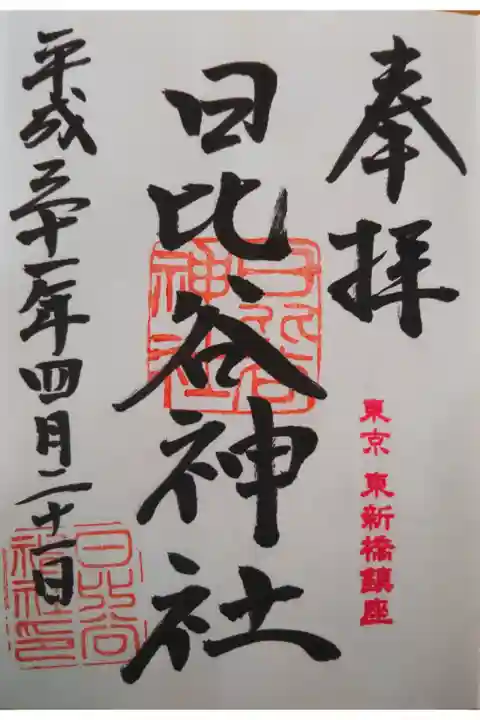 奉拝
東京 東新橋鎮座
日比谷神社
日比谷神社
平成三十一年四月二十一日
日比谷神社印